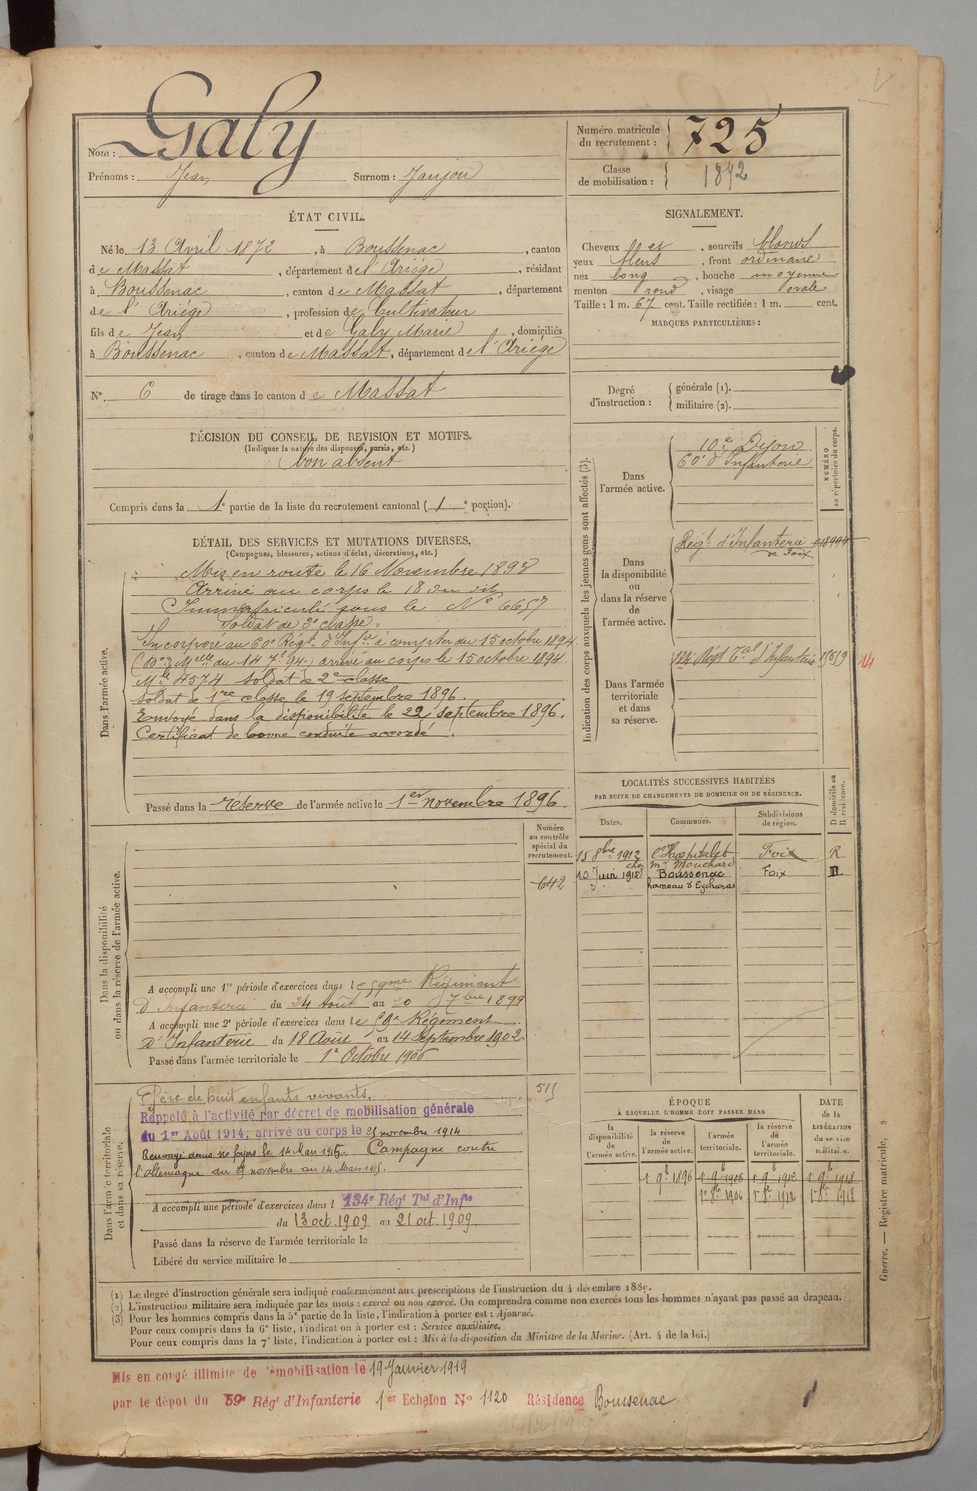 Nom : Galy
Prénoms : Jean Surnom : Janjou
Numéro matricule du recrutement : 725
Classe de mobilisation : 1892
ÉTAT CIVIL.
Né le 13 Avril 1872, à Boussenac, canton
de Massat, département de l'Ariège, résidant
à Boussenac, canton de Massat, département
de l'Ariège, profession de Cultivateur
fils de Jean et de Galy Marie, domiciliés
à Boussenac, canton de Massat, département de l'Ariège
SIGNALEMENT.
Cheveux et, sourcils blonds
yeux bleus, front ordinaire
nez long, bouche moyenne
menton rond, visage ovale
Taille : 1 m. 67 cent. Taille rectifiée : 1 m. cent.
MARQUES PARTICULIÈRES :
N° 6 de tirage dans le canton de Massat
Degré d'instruction : générale (1).
militaire (2).
DÉCISION DU CONSEIL DE REVISION ET MOTIFS.
(Indiquer la nature des dispenses, sursis, etc.)
bon absent
Compris dans la 1e partie de la liste du recrutement cantonal (1e portion).
DÉTAIL DES SERVICES ET MUTATIONS DIVERSES.
(Campagnes, blessures, actions d'éclat, décorations, etc.)
Dans l'armée active.
Mis en route le 16 Novembre 1893
Arrivé au corps le 18 du dit
Immatriculé sous le N° 6657
Soldat de 2e classe.
Incorporé au 60e Régt d'Infie à compter du 15 octobre 1894
arrivé au corps le 15 octobre 1894
Mle 4574 soldat de 2e classe
Soldat de 1re classe le 19 septembre 1896.
Envoyé dans la disponibilité le 22 septembre 1896.
Certificat de bonne conduite accordé.
Passé dans la réserve de l'armée active le 1er novembre 1896.
Indication des corps auxquels les jeunes gens sont affectés (3).
NUMÉRO au répertoire du corps.
Dans l'armée active.
10e Dijon
60e d'Infanterie
Dans la disponibilité ou dans la réserve de l'armée active.
Régt d'Infanterie
de Foix
Dans l'armée territoriale et dans sa réserve.
134e Régt Tal d'Infanterie
LOCALITÉS SUCCESSIVES HABITÉES
PAR SUITE DE CHANGEMENTS DE DOMICILE OU DE RÉSIDENCE.
D domicile ou R résidence.
Dates. Communes. Subdivisions de région.
15 8bre 1912 l'Hospitalet Foix R
chez Mr Mouchard
10 Juin 1918 Boussenac Foix D
hameau d'Eycharas
Dans la disponibilité ou dans la réserve de l'armée active.
Numéro au contrôle spécial du recrutement.
642
A accompli une 1re période d'exercices dans le 59me Régiment
d'Infanterie du 24 Août au 20 7bre 1899
A accompli une 2e période d'exercices dans le 59e Régiment
d'Infanterie du 18 Août au 14 Septembre 1902
Passé dans l'armée territoriale le 1er Octobre 1906
Dans l'armée territoriale et dans sa réserve.
515
Père de huit enfants vivants.
Rappelé à l'activité par décret de mobilisation générale
du 1er Août 1914, arrivé au corps le 25 novembre 1914
Renvoyé dans ses foyers le 14 Mars 1915. Campagne contre
l'allemagne du 25 novembre au 14 Mars 1915.
A accompli une période d'exercices dans l 134e Régt Tal d'Infie
du 13 oct. 1909 au 21 oct. 1909
Passé dans la réserve de l'armée territoriale le
Libéré du service militaire le
ÉPOQUE
A LAQUELLE L'HOMME DOIT PASSER DANS
la disponibilité de l'armée active. la réserve de l'armée active. l'armée territoriale. la réserve de l'armée territoriale.
DATE de la LIBÉRATION du service militaire.
1 9bre 1896 1 9bre 1906 1 9bre 1912 1 9bre 1918
1er 8bre 1906 1er 8bre 1912 1er 8bre 1918
Guerre. — Registre matricule, 2
(1) Le degré d'instruction générale sera indiqué conformément aux prescriptions de l'instruction du 4 décembre 1889.
(2) L'instruction militaire sera indiquée par les mots : exercé ou non exercé. On comprendra comme non exercés tous les hommes n'ayant pas passé au drapeau.
(3) Pour les hommes compris dans la 5e partie de la liste, l'indication à porter est : Ajourné.
Pour ceux compris dans la 6e liste, l'indication à porter est : Service auxiliaire.
Pour ceux compris dans la 7e liste, l'indication à porter est : Mis à la disposition du Ministre de la Marine. (Art. 4 de la loi.)
Mis en congé illimité de démobilisation le 19 Janvier 1919
par le dépôt du 59e Régt d'Infanterie 1er Echelon N° 1120 Résidence Boussenac